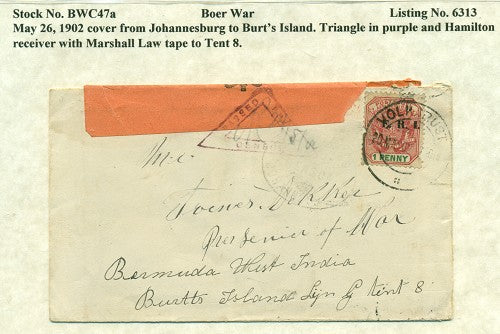 Stock No. BWC47a Boer War Listing No. 6313
May 26, 1902 cover from Johannesburg to Burt's Island. Triangle in purple and Hamilton
receiver with Marshall Law tape to Tent 8.
VOLKSRUST
1 PENNY
Prisenier of War
Bermuda West India
Burtts Island Tent 8